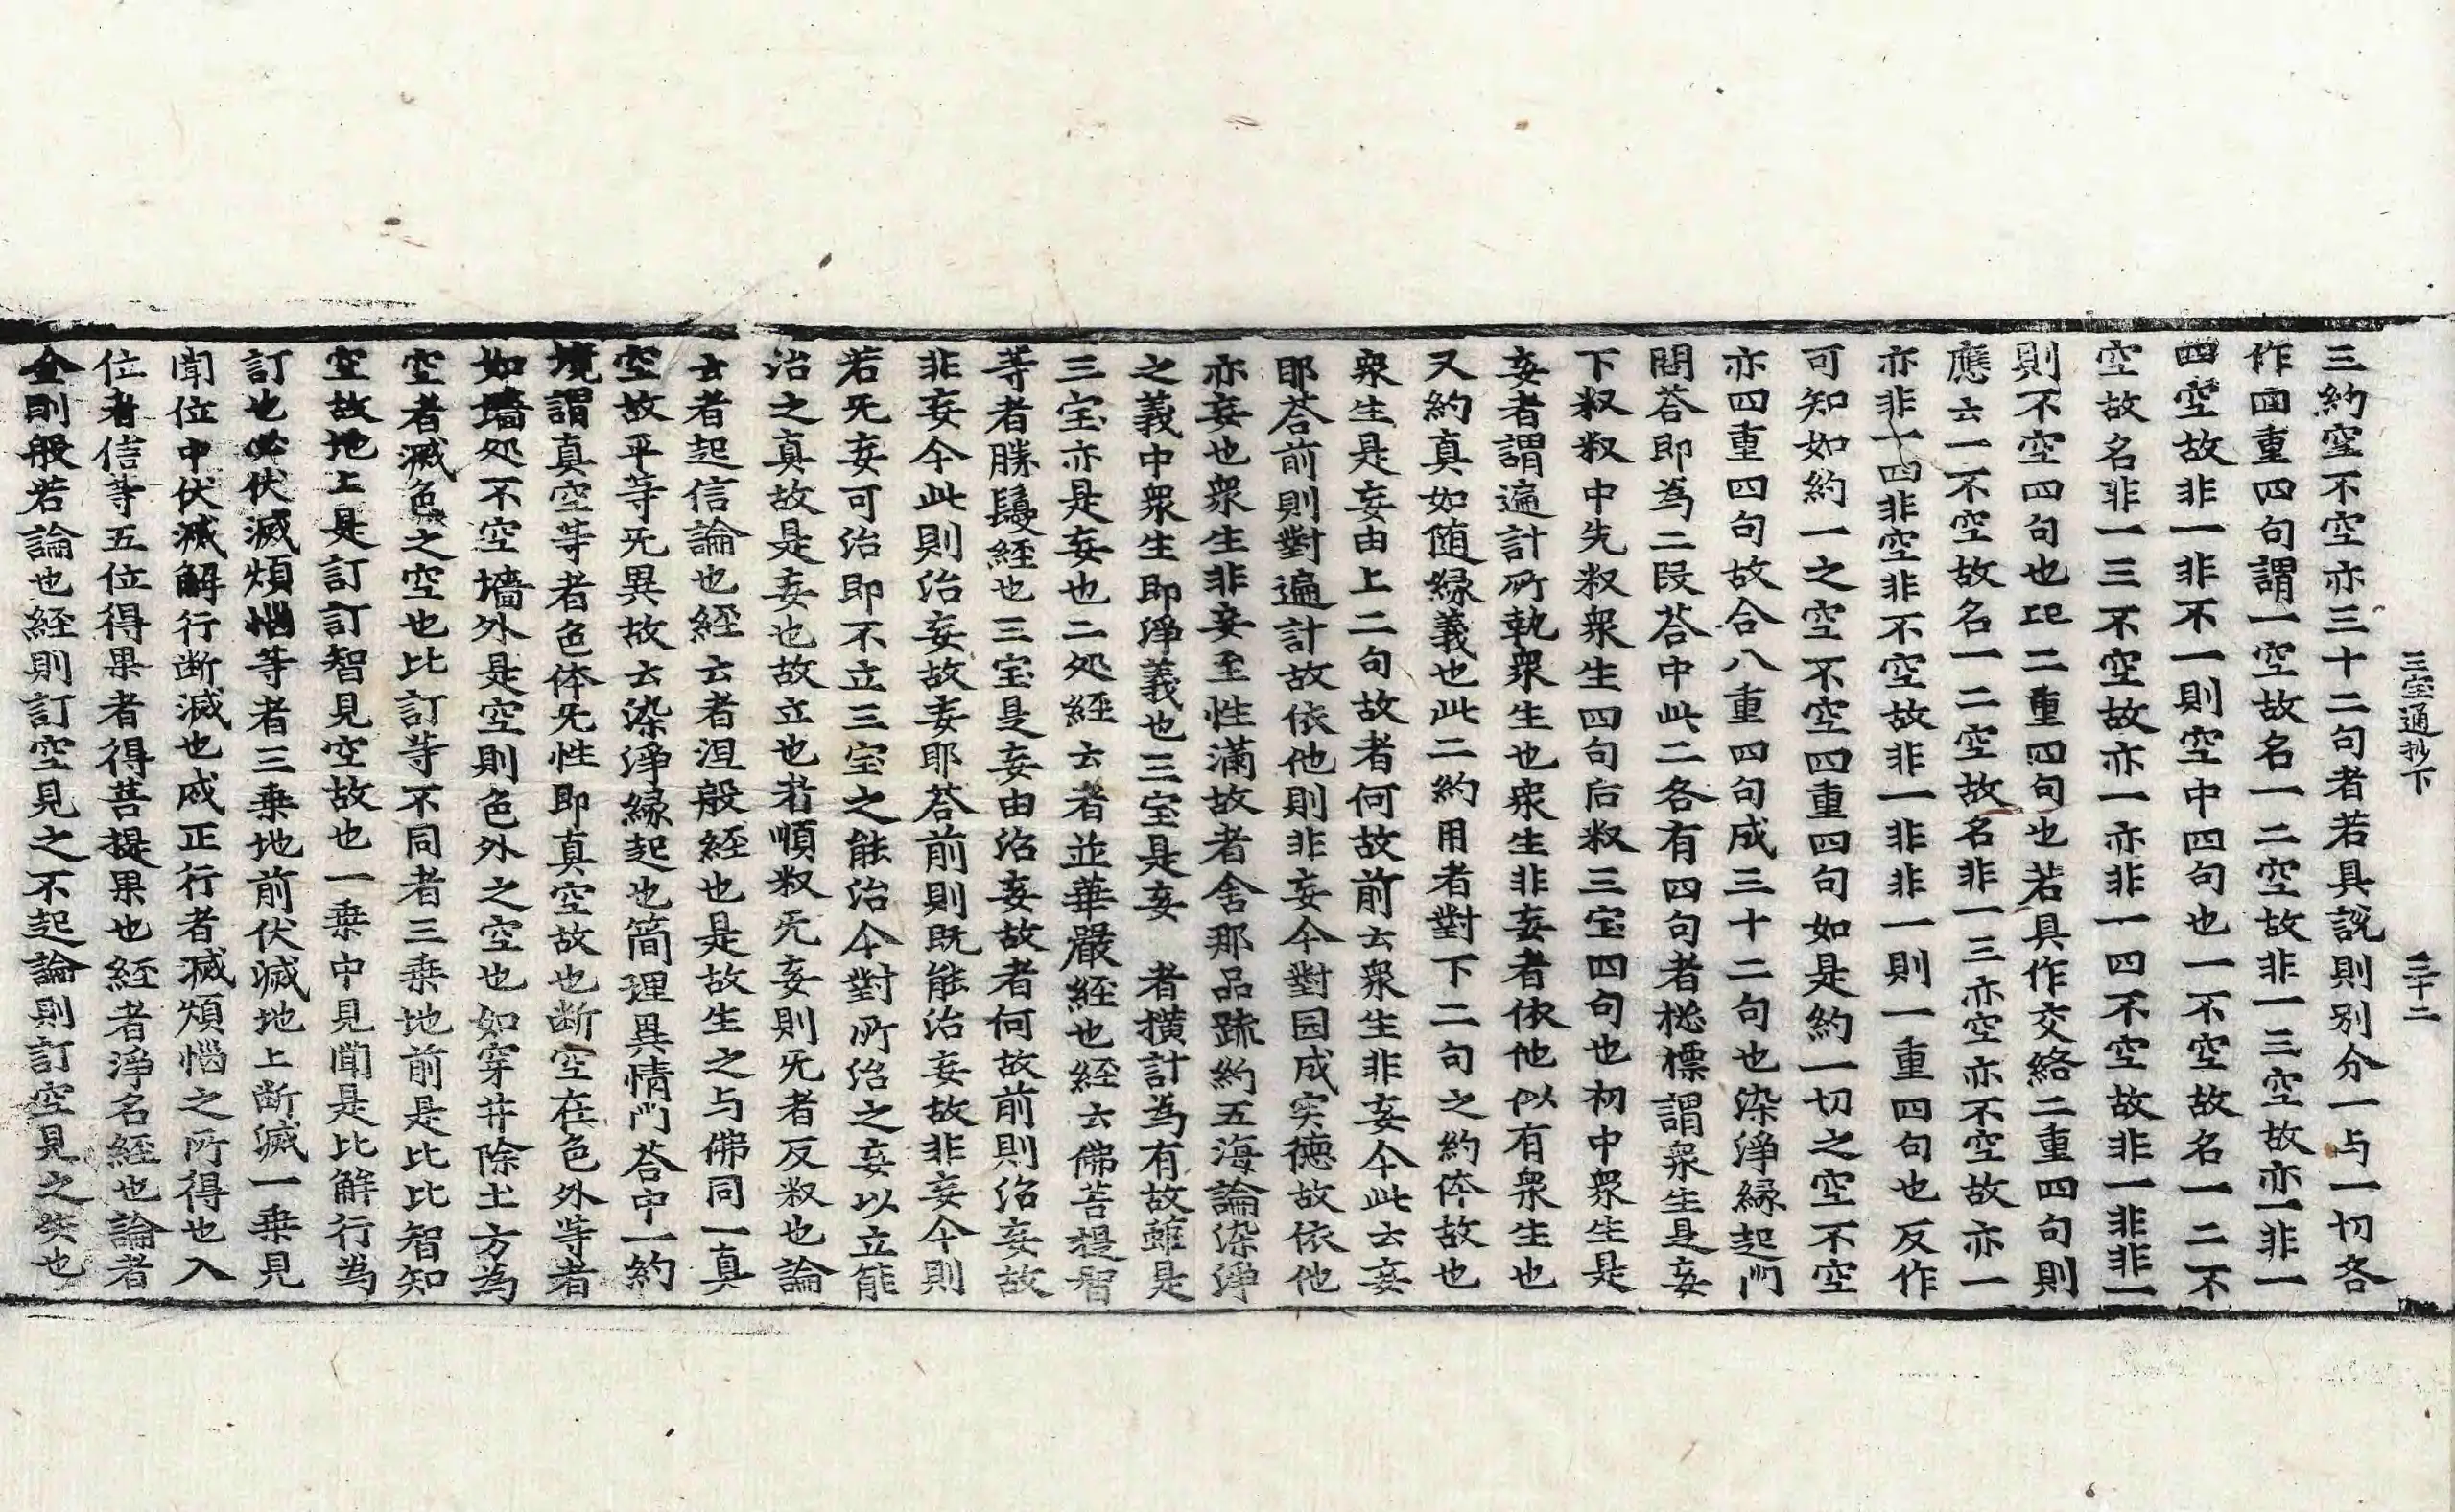 三宝通抄下　三十二
三約空不空亦三十二句者若具說則別分一与一切各
作四重四句謂一空故名一二空故非一三空故亦一非一
四空故非一非不一則空中四句也一不空故名一二不
空故名非一三不空故亦一亦非一四不空故非一非非一
則不空四句也此二重四句也若具作交絡二重四句則
應云一不空故名一二空故名非一三亦空亦不空故亦一
亦非一四非空非不空故非一非非一則一重四句也反作
可知如約一之空不空四重四句如是約一切之空不空
亦四重四句故合八重四句成三十二句也染淨縁起門
問荅即為二段荅中此二各有四句者揔標謂衆生是妄
下釈釈中先釈衆生四句后釈三宝四句也初中衆生是
妄者謂遍計所執衆生也衆生非妄者依他似有衆生也
又約真如随縁義也此二約用者對下二句之約体故也
衆生是妄由上二句故者何故前云衆生非妄今此云妄
耶荅前則對遍計故依他則非妄今對园成实德故依他
亦妄也衆生非妄至性滿故者舍那品䟽約五海論染淨
之義中衆生即淨義也三宝是妄　者横計為有故雖是
三宝亦是妄也二処經云者並華嚴經也經云佛菩提智
等者勝鬘經也三宝是妄由治妄故者何故前則治妄故
非妄今此則治妄故妄耶荅前則既能治妄故非妄今則
若旡妄可治即不立三宝之能治今對所治之妄以立能
治之真故是妄也故立也若順釈旡妄則旡者反釈也論
云者起信論也經云者涅般經也是故生之与佛同一真
空故平等旡異故云染淨縁起也簡理異情門荅中一約
境謂真空等者色体旡性即真空故也断空在色外等者
如墻処不空墻外是空則色外之空也如穿井除土方為
空者滅色之空也比訂等不同者三乗地前是比比智知
空故地上是訂訂智見空故也一乗中見聞是比解行為
訂也必伏滅煩惱等者三乗地前伏滅地上断滅一乗見
聞位中伏滅解行断滅也成正行者滅煩惱之所得也入
位者信等五位得果者得菩提果也經者淨名經也論者
金剛般若論也經則訂空見之不起論則訂空見之失也